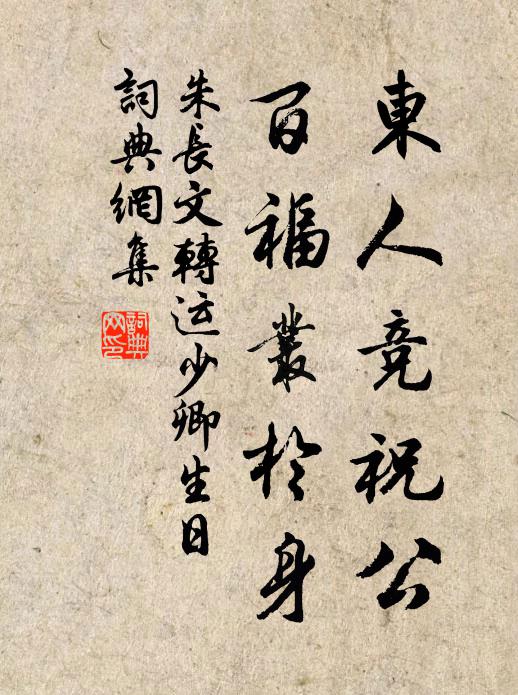 東人竞祝公
百福叢於身
朱長文轉运少卿生日
詞典網集
詞典
网印